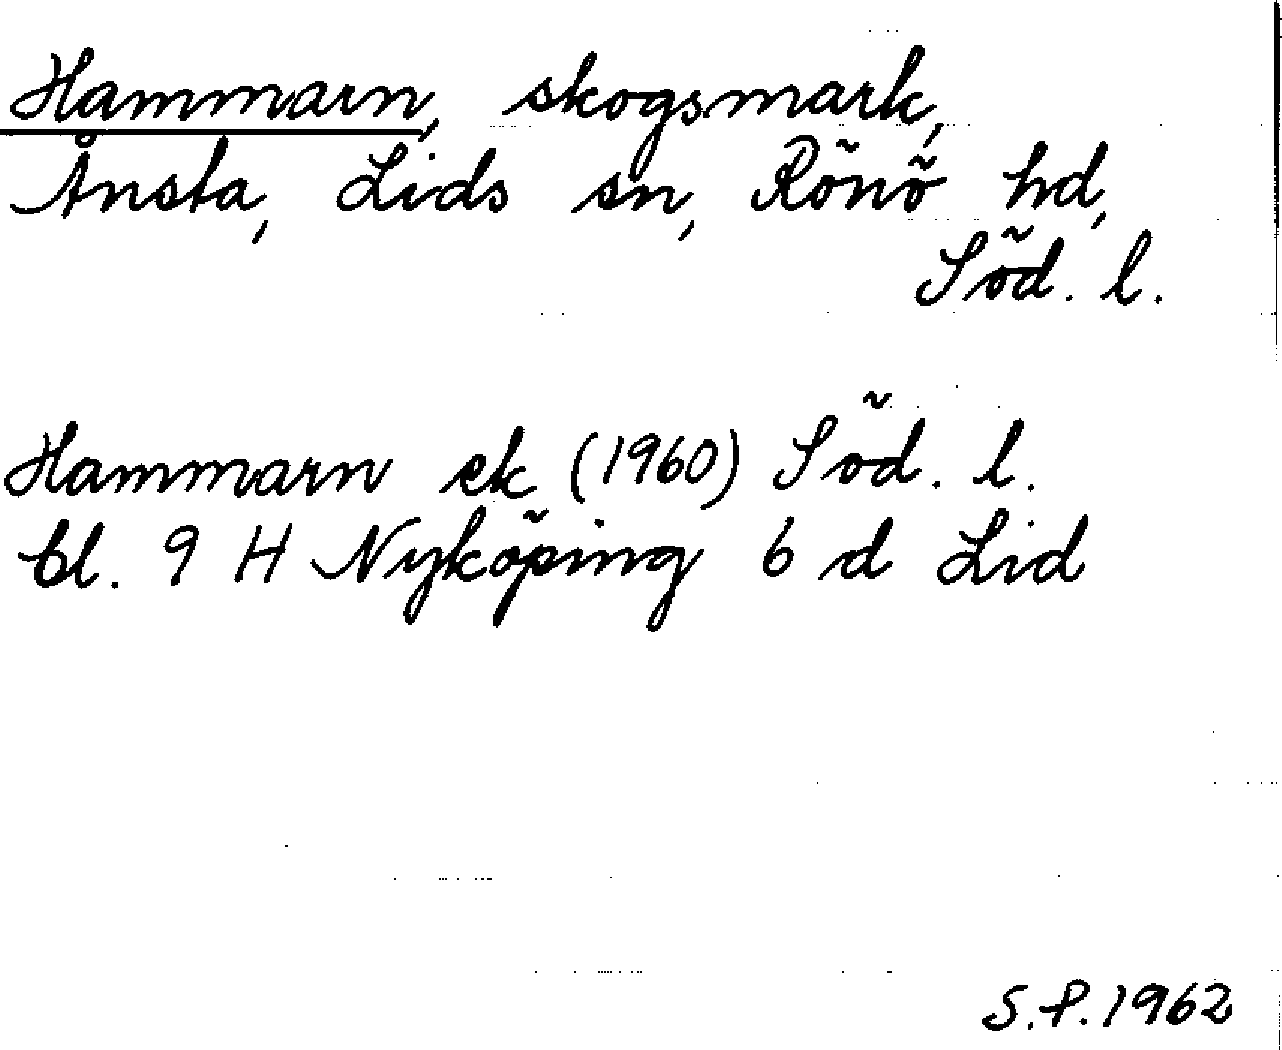 Hammarn, skogsmark,
Ånsta, Lids sn, Rönö hd,
Söd. l.
Hammarn ek (1960) Söd. l.
bl. 9 H Nyköping 6 d Lid
S.P. 1962